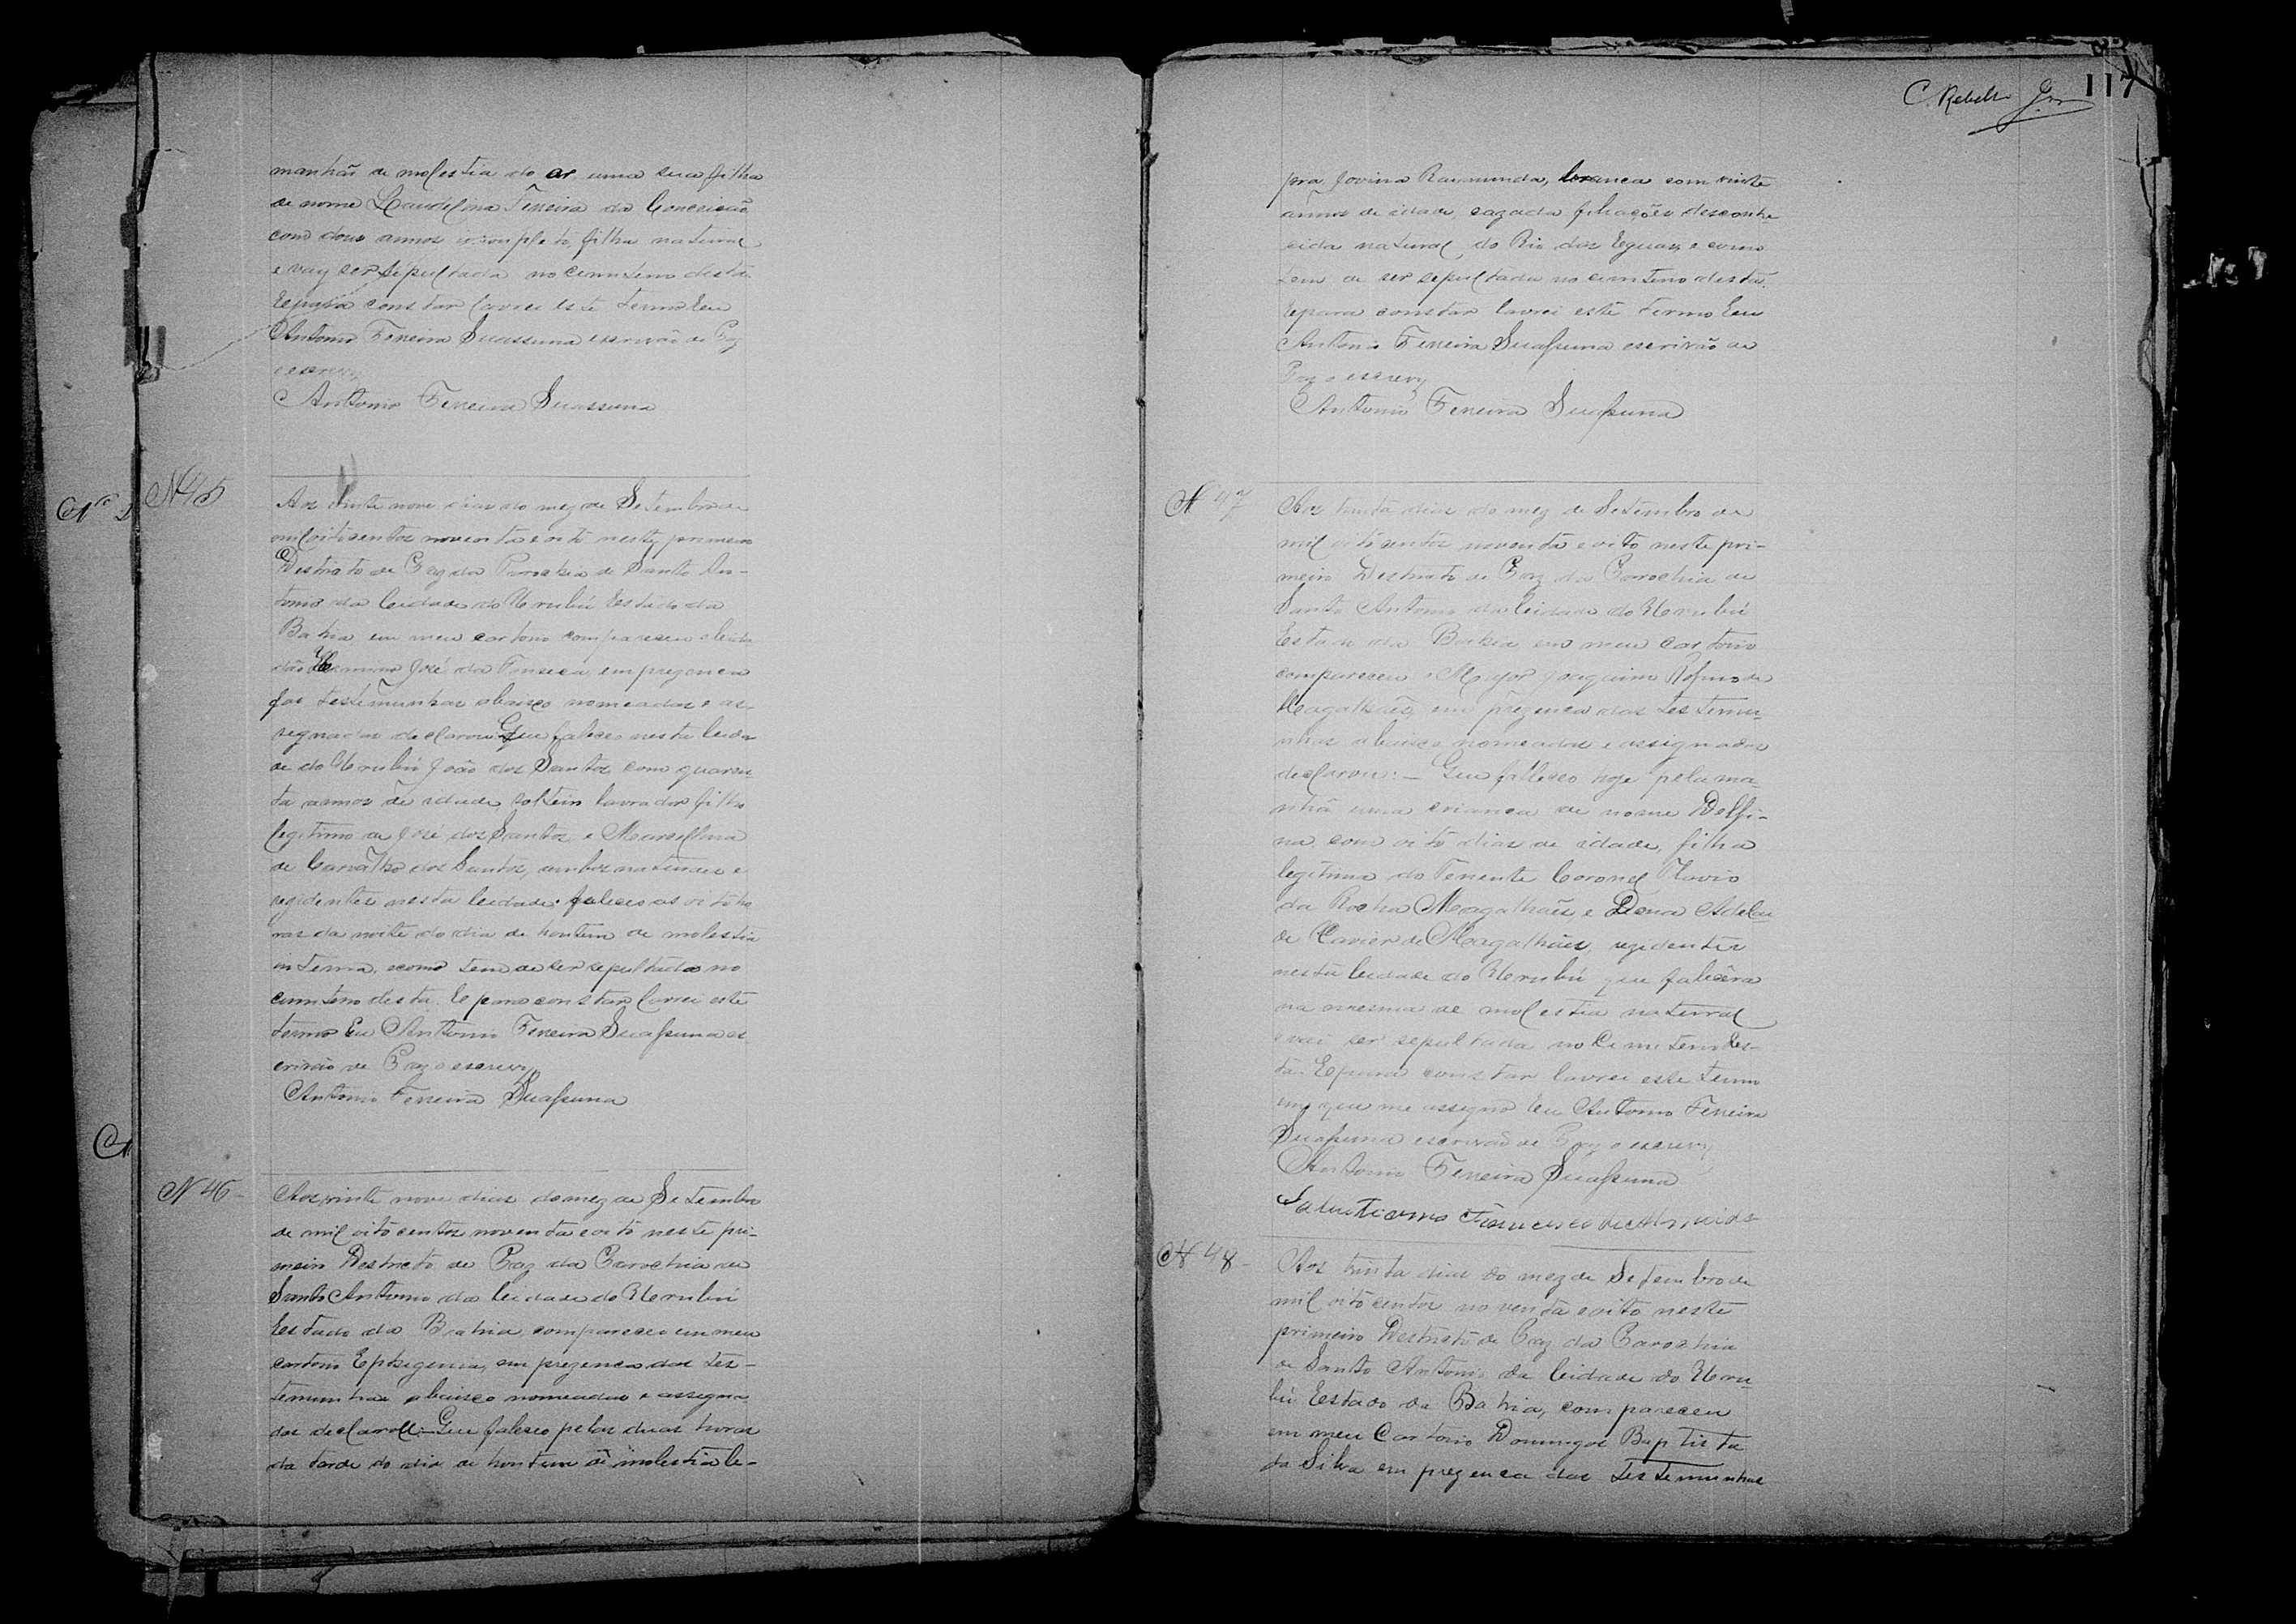 manhã de molestia do ar, uma sua filha
de nome Laudelina Ferreira da Conceicão
com dous annos incompleto, filha natural
e vay ser sepultada no cemiterio desta.
E para constar lavrei este termo Eu
Antonio Ferreira Suassuna escrivão de Paz
o escrevy
Antonio Ferreira Suassuna
N 45
Aos vinte nove dias do mez de Setembro de
mil oitocentos noventa e oito neste primeiro
Destricto de Paz da Parochia de Santo An-
tonio da Cidade do Urubú Estado da
Bahia, em meu cartorio compareceu o cida
dão José da Fonseca, em prezenca
das testemunhas abaixo nomeadas e as-
signadas declarou Que faleceo nesta Cida
de do Urubú João dos Santos, com quaren-
ta annos de idade, solteiro lavrador filho
legitimo de José dos Santos e Marcellina
de Carvalho dos Santos, ambos naturaes e
rezidentes nesta Cidade: faleceo as oito ho
ras da noite do dia de hontem de molestia
interna, e como tem de ser sepultado no
cemiterio desta. E para constar lavrei este
termo Eu Antonio Ferreira Suassuna es
crivão de Paz o escrevy
Antonio Ferreira Suassuna
N 46-
Aos vinte nove dias do mez de Setembro
de mil oitocentos noventa e oito neste pri-
meiro Destricto de Paz da Parochia de
Santo Antonio da Cidade do Urubú
Estado da Bahia, compareceo em meu
cartorio Ephigenia, em prezenca das tes-
temunhas abaixo nomeadas e assigna
das declarou:- Que faleceo pelas duas horas
da tarde do dia de hontem de molestia le-
117
C. Rebello Jor
pra, Jovina Raimunda, branca com vinte
annos de idade, cazada filiações desconhe
cida natural do Rio das Eguas, e como
tem de ser sepultada no cemiterio desta.
E para constar lavrei este termo Eu
Antonio Ferreira Suassuna escrivão de
Paz o escrevy
Antonio Ferreira Suassuna
N 47
Aos trinta dias do mez de Setembro de
mil oitocentos noventa e oito neste pri-
meiro Destricto de Paz da Parochia de
Santo Antonio da Cidade do Urubú
Estado da Bahia em meu cartorio
compareceu o Major Joaquim Rofino de
Magalhães, em prezenca das testemu-
nhas abaixo nomeadas e assignadas
declarou:- Que falleceo hoje pela ma-
nhã uma crianca de nome Delfi-
na, com oito dias de idade, filha
legitima do Tenente Coronel Flavio
da Rocha Magalhães, e Dona Adelai
de Xavier de Magalhães, rezidentes
nesta Cidade do Urubú que falecêra
na mesma de molestia natural
e vai ser sepultada no Cemiterio des-
ta. E para constar lavrei este termo
em que me assigno Eu Antonio Ferreira
Suassuna escrivão de Paz o escrevy
Antonio Ferreira Suassuna
Francisco de Almeida
N 48-
Aos trinta dias do mez de Setembro de
mil oitocentos noventa e oito neste
primeiro Destricto de Paz da Parochia
de Santo Antonio da Cidade do Uru-
bú Estado da Bahia, compareceu
em meu Cartorio Domingos Baptista
da Silva em prezenca das testemunhas